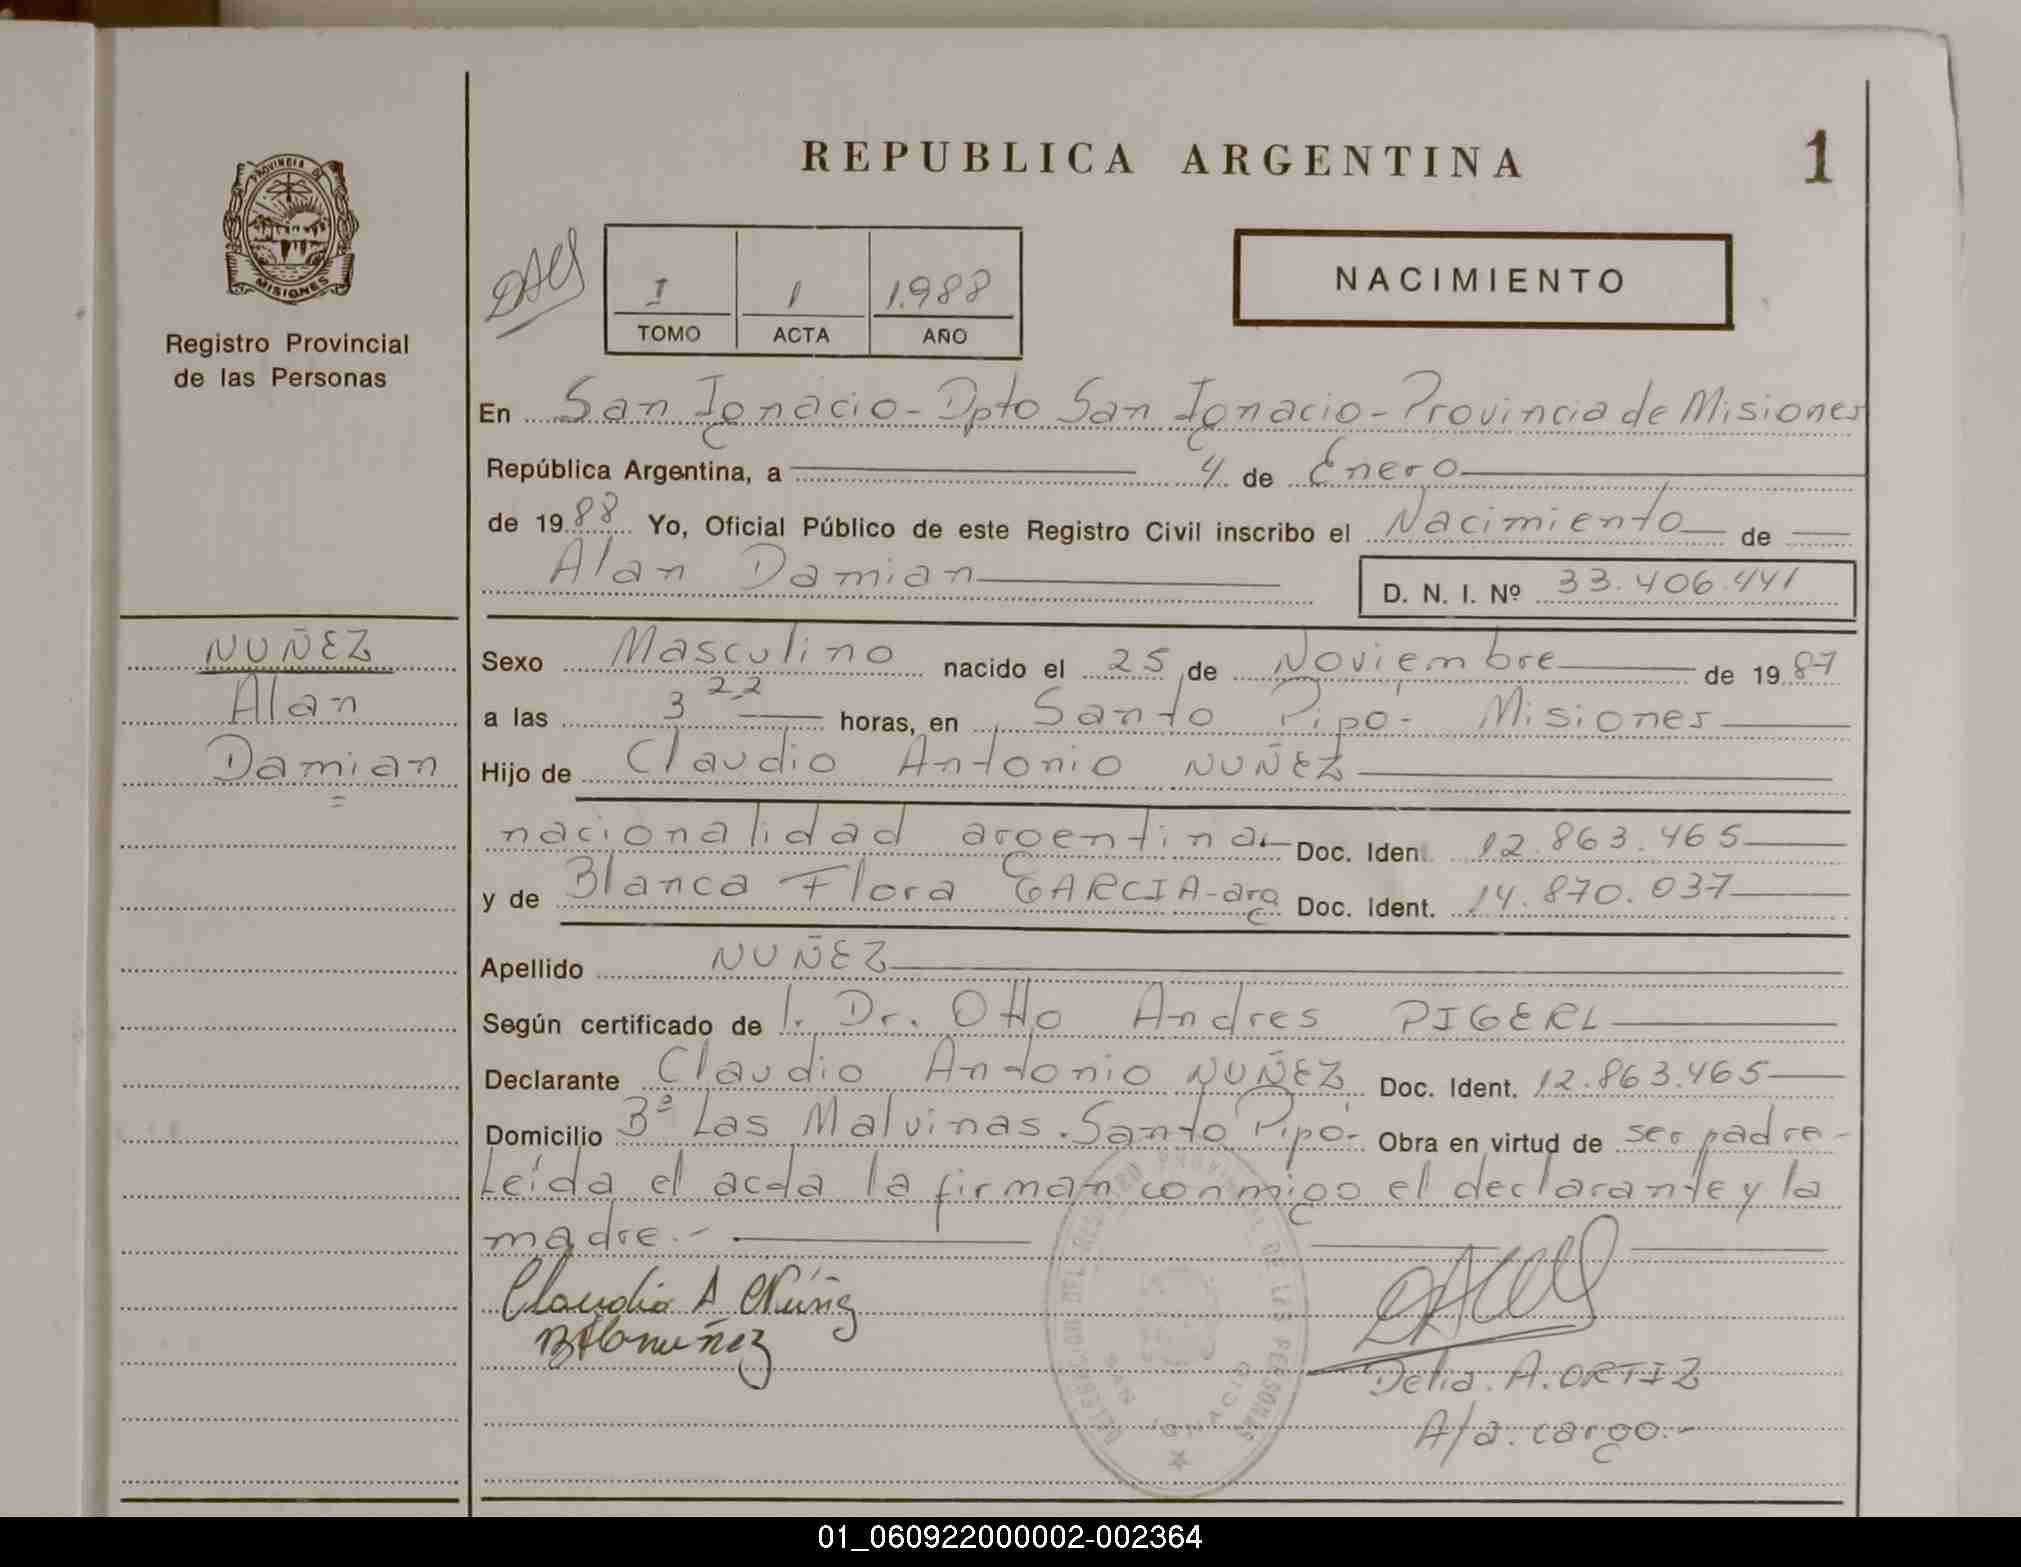 REPUBLICA ARGENTINA
1
PROVINCIA DE
MISIONES
Registro Provincial
de las Personas
I 1 1.988
TOMO ACTA AÑO
NACIMIENTO
En San Ignacio - Dpto San Ignacio - Provincia de Misiones
República Argentina, a 4 de Enero
de 1988 Yo, Oficial Público de este Registro Civil inscribo el Nacimiento de
Alan Damian D. N. I. Nº 33.406.441
NUÑEZ
Alan
Damian
Sexo Masculino nacido el 25 de Noviembre de 1987
a las 3 22 horas, en Santo Pipó - Misiones
Hijo de Claudio Antonio NUÑEZ
nacionalidad argentina.- Doc. Ident. 12.863.465
y de Blanca Flora GARCIA - arg Doc. Ident. 14.870.037
Apellido NUÑEZ
Según certificado de l. Dr. Otto Andres PIGERL
Declarante Claudio Antonio NUÑEZ Doc. Ident. 12.863.465
Domicilio Bº Las Malvinas. Santo Pipó - Obra en virtud de ser padre -
Leída el acta la firman conmigo el declarante y la
madre.-
Claudio A Núñez
Delia. A. ORTIZ
A/a. cargo.-
DELEGACION DEL REGISTRO PROVINCIAL DE LAS PERSONAS
SAN IGNACIO
01_060922000002-002364